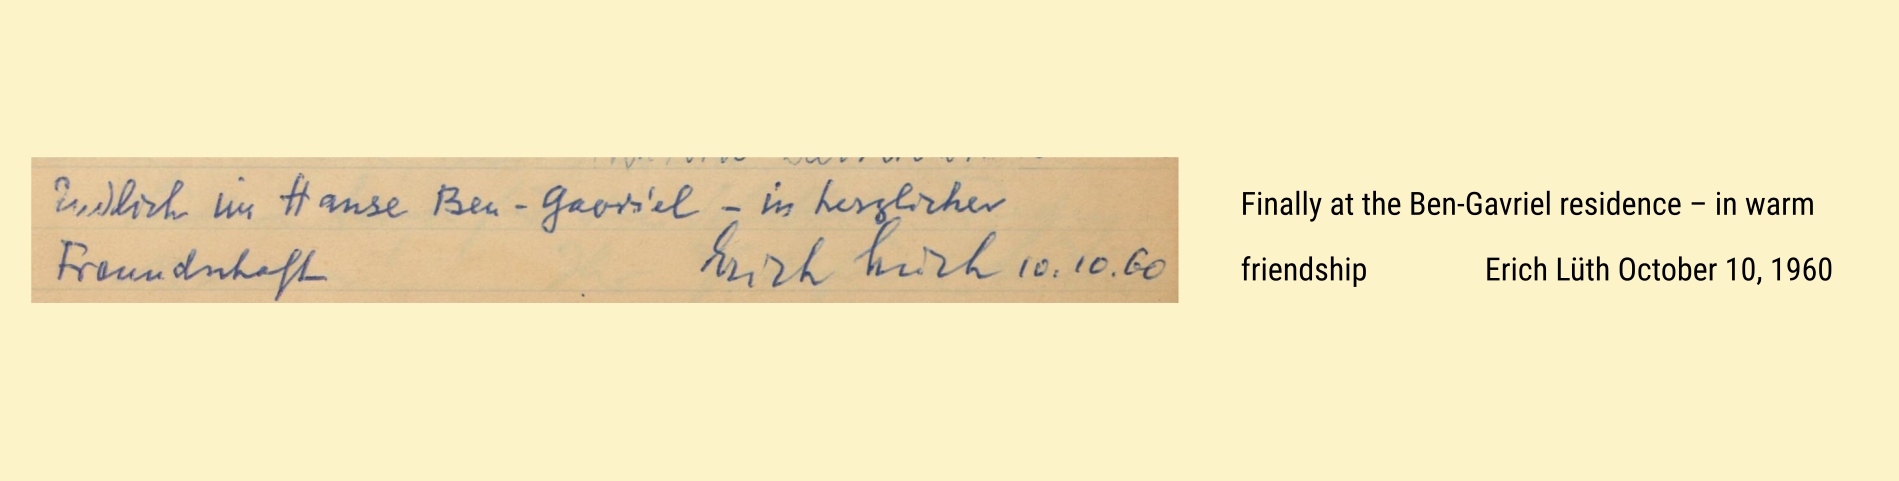 Endlich im Hause Ben-Gavriel – in herzlicher
Freundschaft Erich Lüth 10.10.60
Finally at the Ben-Gavriel residence – in warm
friendship Erich Lüth October 10, 1960